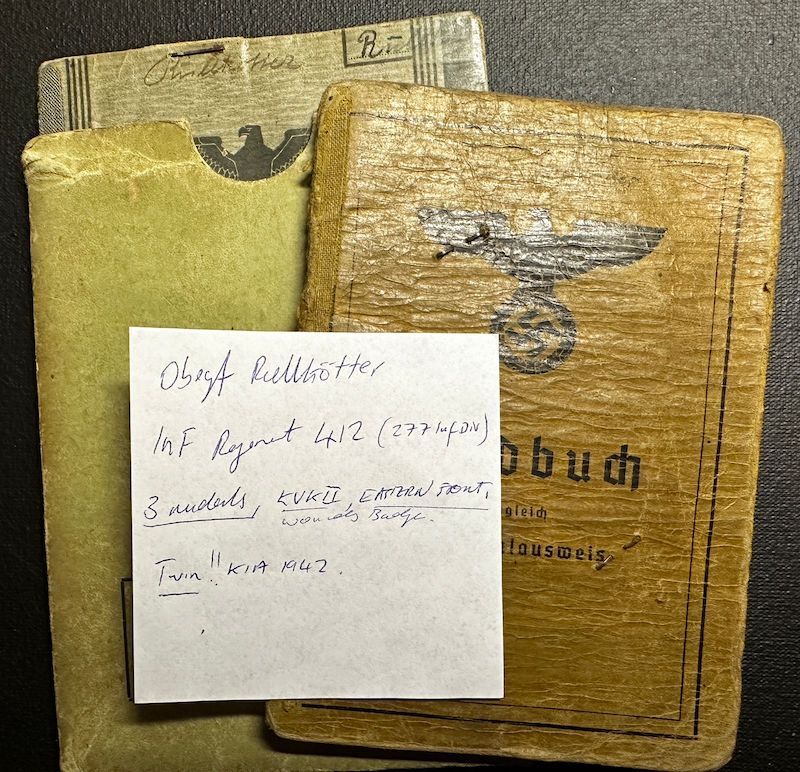 R.
Obegf Rullkötter
Inf Regment 412 (277 Inf Div)
3 medals, KVKII, EASTERN FRONT,
wounds Badge.
Twin!! KIA 1942.
dbuch
gleich
alausweis